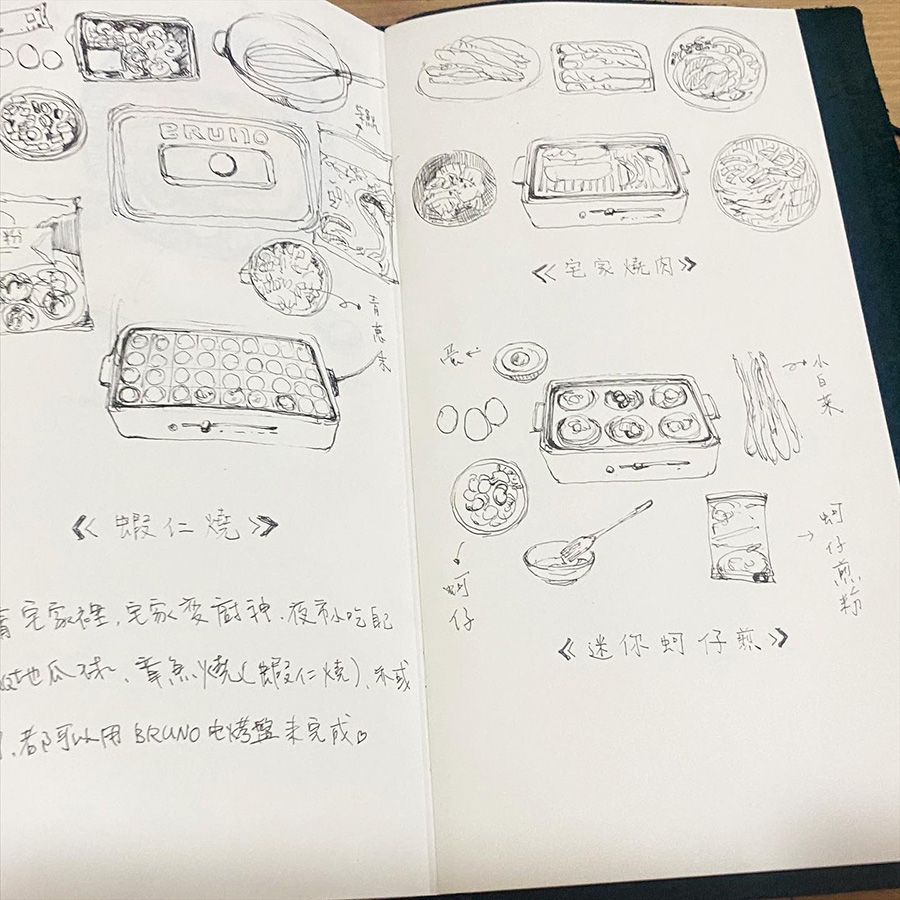 BRUNO
粉
青蔥末
《蝦仁燒》
宅家裡，宅家變廚神，夜市小吃自
地瓜球、章魚燒(蝦仁燒)、亦或
，都可以用 BRUNO 电烤盤来完成♡
《宅家燒肉》
蛋
小白菜
蚵仔
蚵仔煎粉
《迷你蚵仔煎》